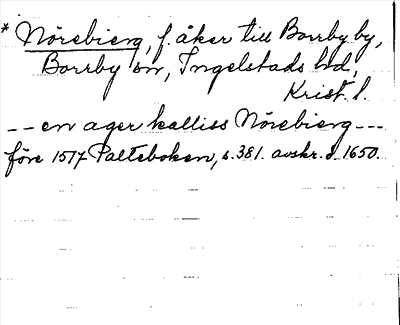 * Nörebierg, f. åker till Borrby by,
Borrby sn, Ingelstads hd,
Krist. l.
-- en ager kalliss Nörebierg ---
före 1517 Palteboken, s. 381. avskr. d. 1650.